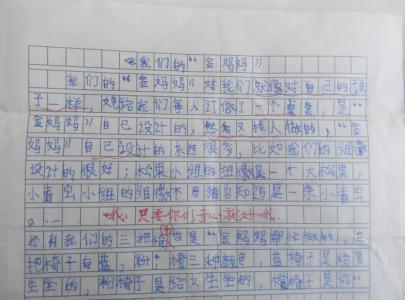 《我们的“金妈妈》
我们的“金妈妈”对我们就像对自己的孩
子一样，她给我们每人订做了一个桌套，是“
金妈妈”自己设计的，然后又找人做的，“金
妈妈”自己设计的东西很多，比如我们的组徽
设计的很好；松果小组的组徽是一个大松果，
小青虫小组的组徽不用猜自知道是一条小青虫
哦，只要你们开心就好哦。
还有我们的三把椅也是“金妈妈帮忙做的，三
把椅子有蓝，粉，橙三种颜色，蓝椅子是给男
生坐的，粉椅子是给女生坐的，橙椅子是给“